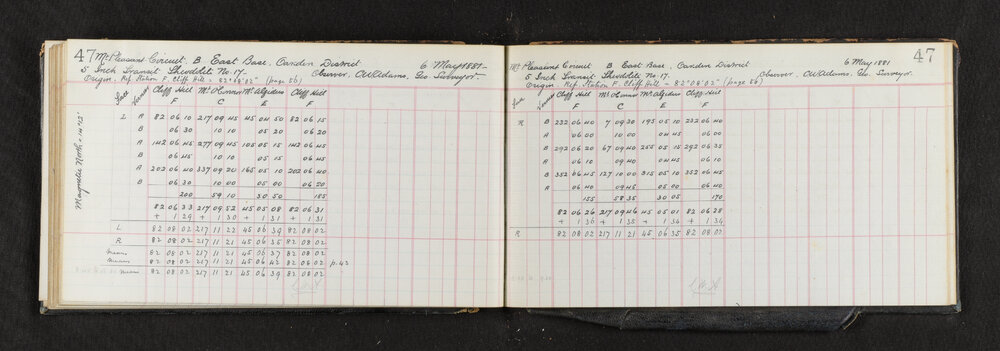 47 Mt Pleasant Circuit. B East Base. Camden District 6 May 1881.
5 Inch Transit Theodolite No. 17. Observer. C.W. Adams. Geo Surveyor.
Origin. Ref Station F. Cliff Hill - 82° 08' 02" (page 56)
Face Vernier Cliff Hill Mt Algidus Cliff Hill
F C E F
Magnetic North =
L A 82 06 10 217 09 45 45 04 50 82 06 15
B 06 30 10 10 05 20 06 20
A 142 06 45 277 09 45 105 05 15 142 06 45
B 06 45 10 10 05 15 06 45
A 202 06 40 337 09 20 165 05 10 202 06 40
B 06 30 10 00 05 00 06 20
200 59 10 30 50 185
82 06 33 217 09 52 45 05 08 82 06 31
+ 1 29 + 1 30 + 1 31 + 1 31
L 82 08 02 217 11 22 45 06 39 82 08 02
R 82 08 02 217 11 21 45 06 35 82 08 02
Means 82 08 02 217 11 21 45 06 37 82 08 02
Means 82 08 02 217 11 21 45 06 42 82 08 02 p. 42
Means 82 08 02 217 11 21 45 06 39 82 08 02
47
Mt Pleasant Circuit B East Base. Camden District 6 May 1881
5 Inch Transit Theodolite No. 17. Observer. C.W. Adams. Geo. Surveyor.
Origin. Ref. Station F. Cliff Hill - 82° 08' 02" (page 56)
Face Vernier Cliff Hill Mt Algidus Cliff Hill
F C E F
R B 232 06 40 7 09 20 195 05 10 232 06 40
A 06 00 10 00 04 45 06 00
B 292 06 20 67 09 40 255 05 15 292 06 35
A 06 10 09 40 04 45 06 10
B 352 06 45 127 10 00 315 05 10 352 06 45
A 06 40 09 45 05 00 06 40
155 58 35 30 05 170
82 06 26 217 09 46 45 05 01 82 06 28
+ 1 36 + 1 35 + 1 34 + 1 34
R 82 08 02 217 11 21 45 06 35 82 08 02